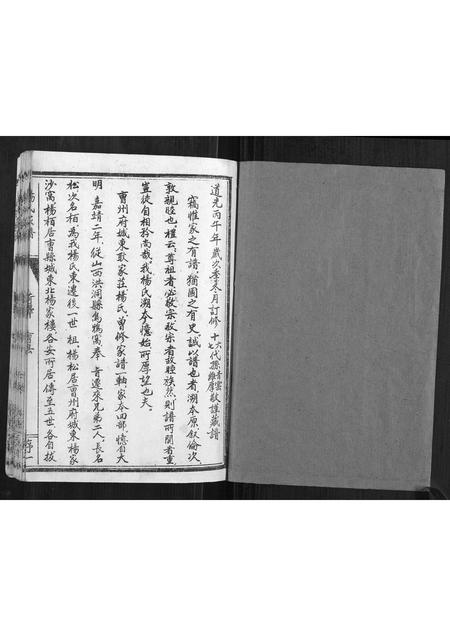 道光丙午年歲次季冬月訂修 十六代孫青雲 十七代孫維厚 敬謹藏譜
竊惟家之有譜，猶國之有史，誠以譜也者，溯本原，敘倫次，
敦親睦也，禮云，尊祖者必敬宗，敬宗者故睦族，然則譜所關者重，
豈徒自相矜尚哉，我楊氏溯本憶始，所厚望也夫，
曹州府城東耿家莊，楊氏，曾修家譜一軸家本四部，憶自大
明嘉靖二年，從山西洪洞縣 鴰窩奉旨遷來，兄弟二人，長名
松次名栢為我楊氏東遷後一世祖，楊松居曹州府城東楊家
沙窩楊栢居曹縣城東北楊家樓，各安所居，傳至五世，各自拔
楊氏家譜
序一